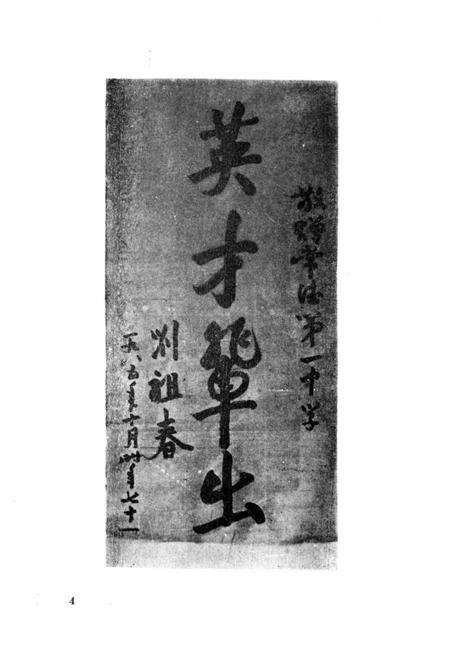 敬赠常德第一中学
英才輩出
刘祖春
一九八五年十月时年七十一
4